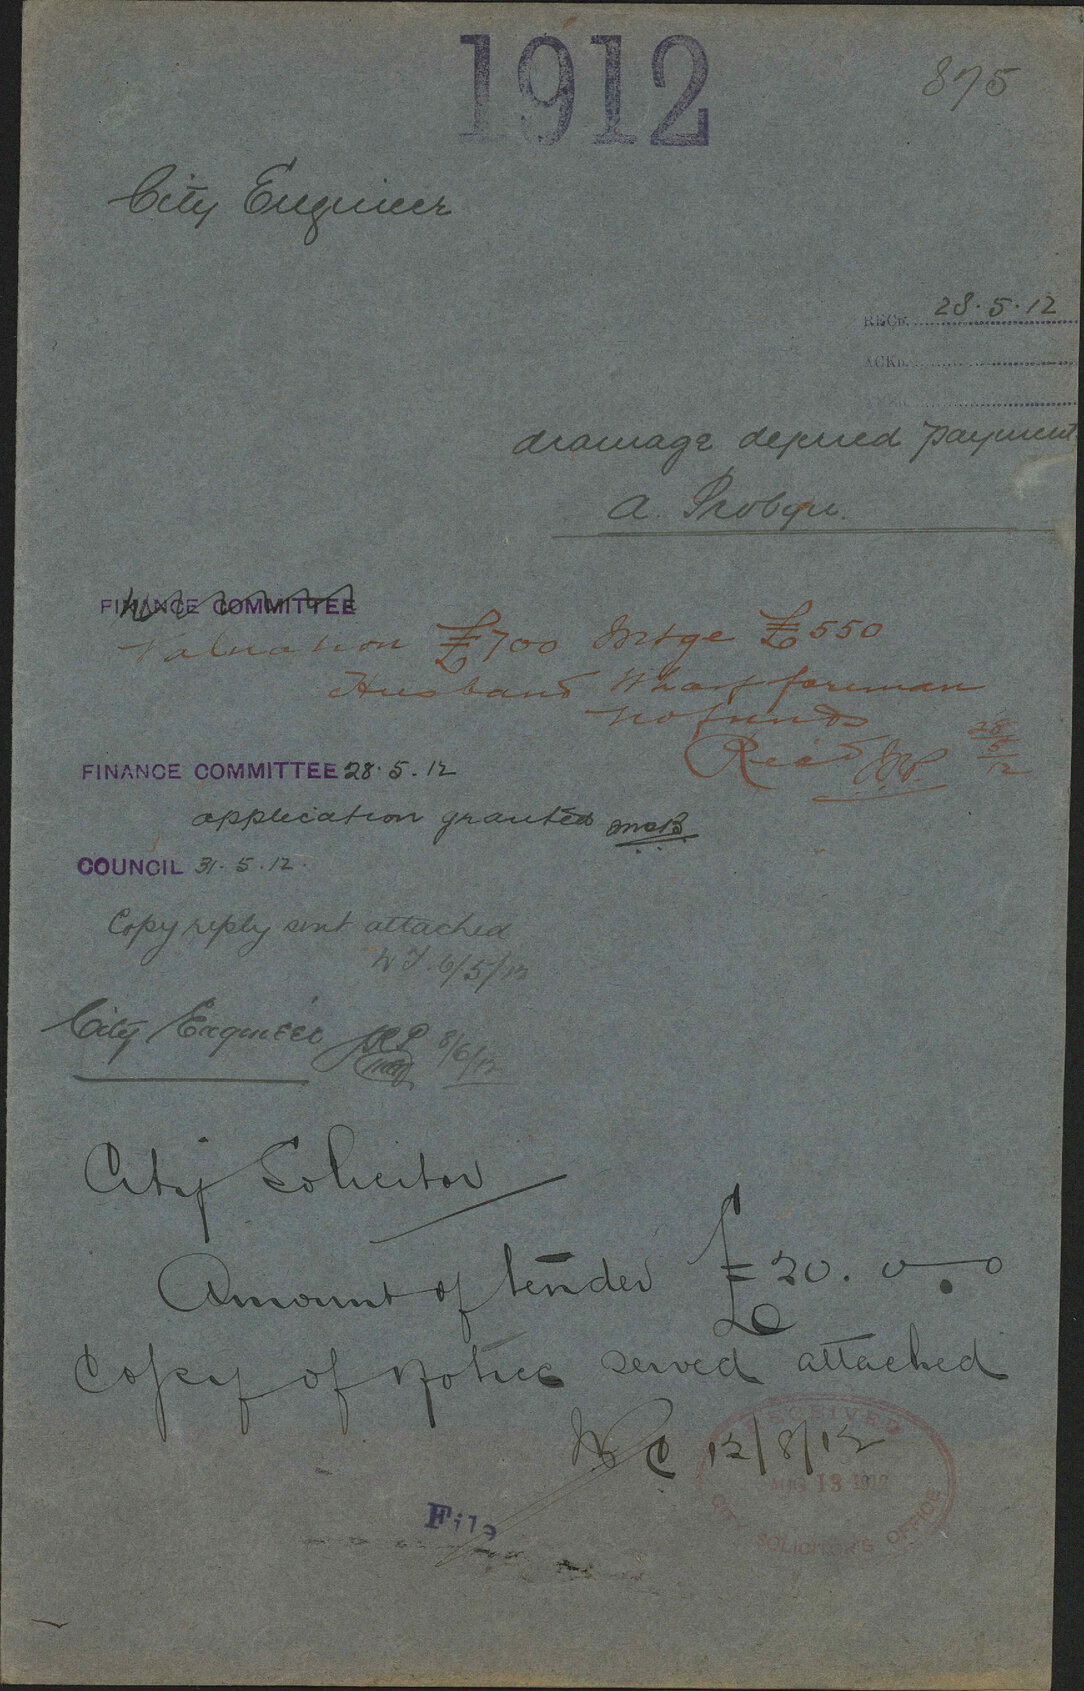 1912
875
City Engineer
RECD. 28.5.12
ACKD.
drainage deferred payment
A. Probyn.
FINANCE COMMITTEE
Valuation £700 Mtge £550
Husband Wharf foreman
no funds
Rec'd
28/5/12
FINANCE COMMITTEE 28.5.12
application granted McB
COUNCIL 31.5.12.
Copy reply sent attached
6/5/12
City Engineer JRP 8/6/12
City Solicitor
Amount of tender £20.0.0
Copy of Notice served attached
WC 12/8/12
RECEIVED
AUG 13 1912
CITY SOLICITOR'S OFFICE
File